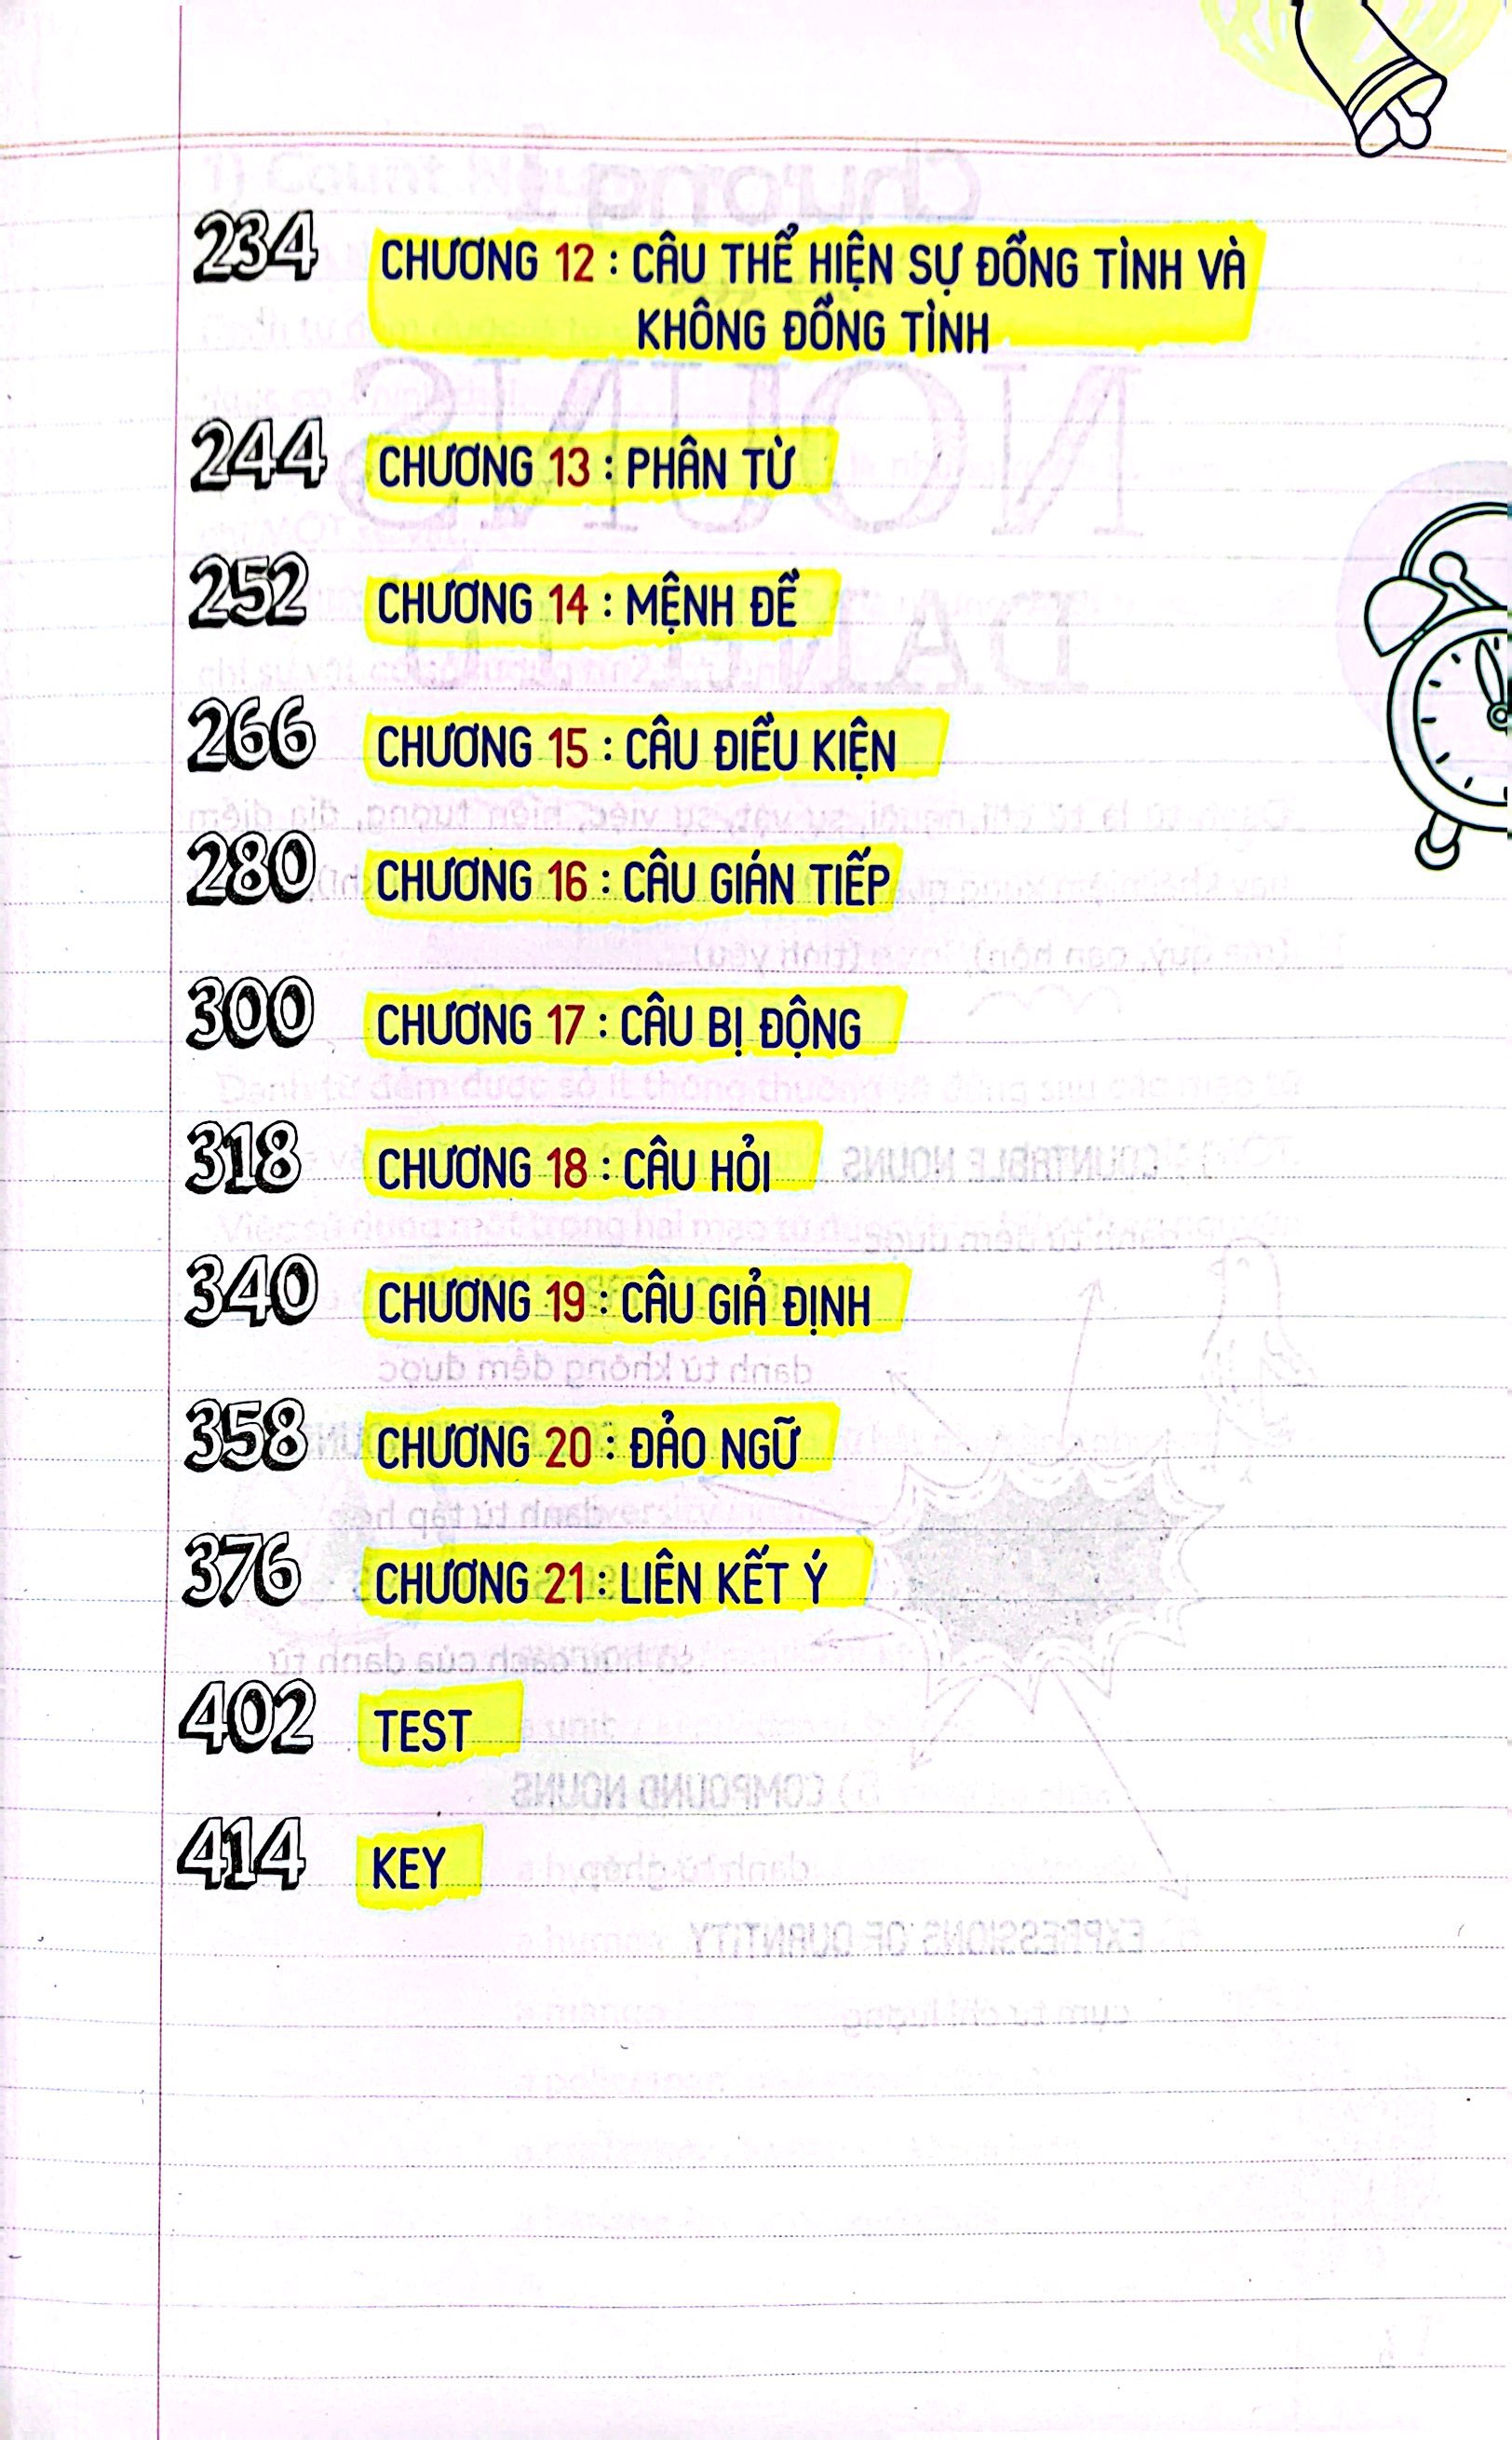 234 CHƯƠNG 12 : CÂU THỂ HIỆN SỰ ĐỒNG TÌNH VÀ
KHÔNG ĐỒNG TÌNH
244 CHƯƠNG 13 : PHÂN TỪ
252 CHƯƠNG 14 : MỆNH ĐỀ
266 CHƯƠNG 15 : CÂU ĐIỀU KIỆN
280 CHƯƠNG 16 : CÂU GIÁN TIẾP
300 CHƯƠNG 17 : CÂU BỊ ĐỘNG
318 CHƯƠNG 18 : CÂU HỎI
340 CHƯƠNG 19 : CÂU GIẢ ĐỊNH
358 CHƯƠNG 20 : ĐẢO NGỮ
376 CHƯƠNG 21 : LIÊN KẾT Ý
402 TEST
414 KEY